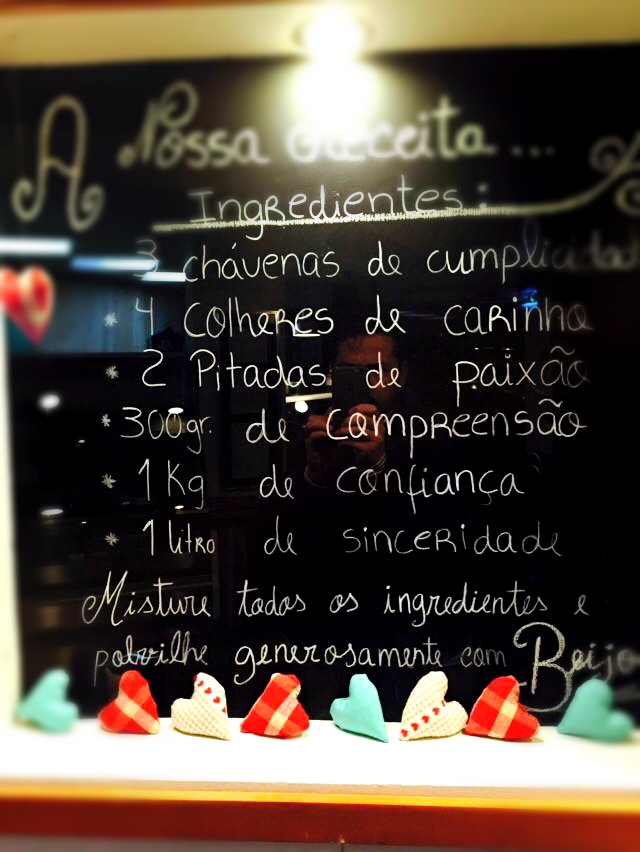 A Nossa Receita...
Ingredientes:
3 chávenas de cumplicidad
* 4 Colheres de carinho
* 2 Pitadas de paixão
* 300gr. de compreensão
* 1 Kg de confiança
* 1 litro de sinceridade
Misture todos os ingredientes e
polvilhe generosamente com Beijo